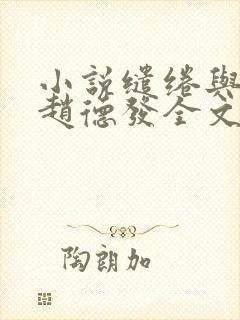 小說繾綣與
趙德發全文
陶朗加